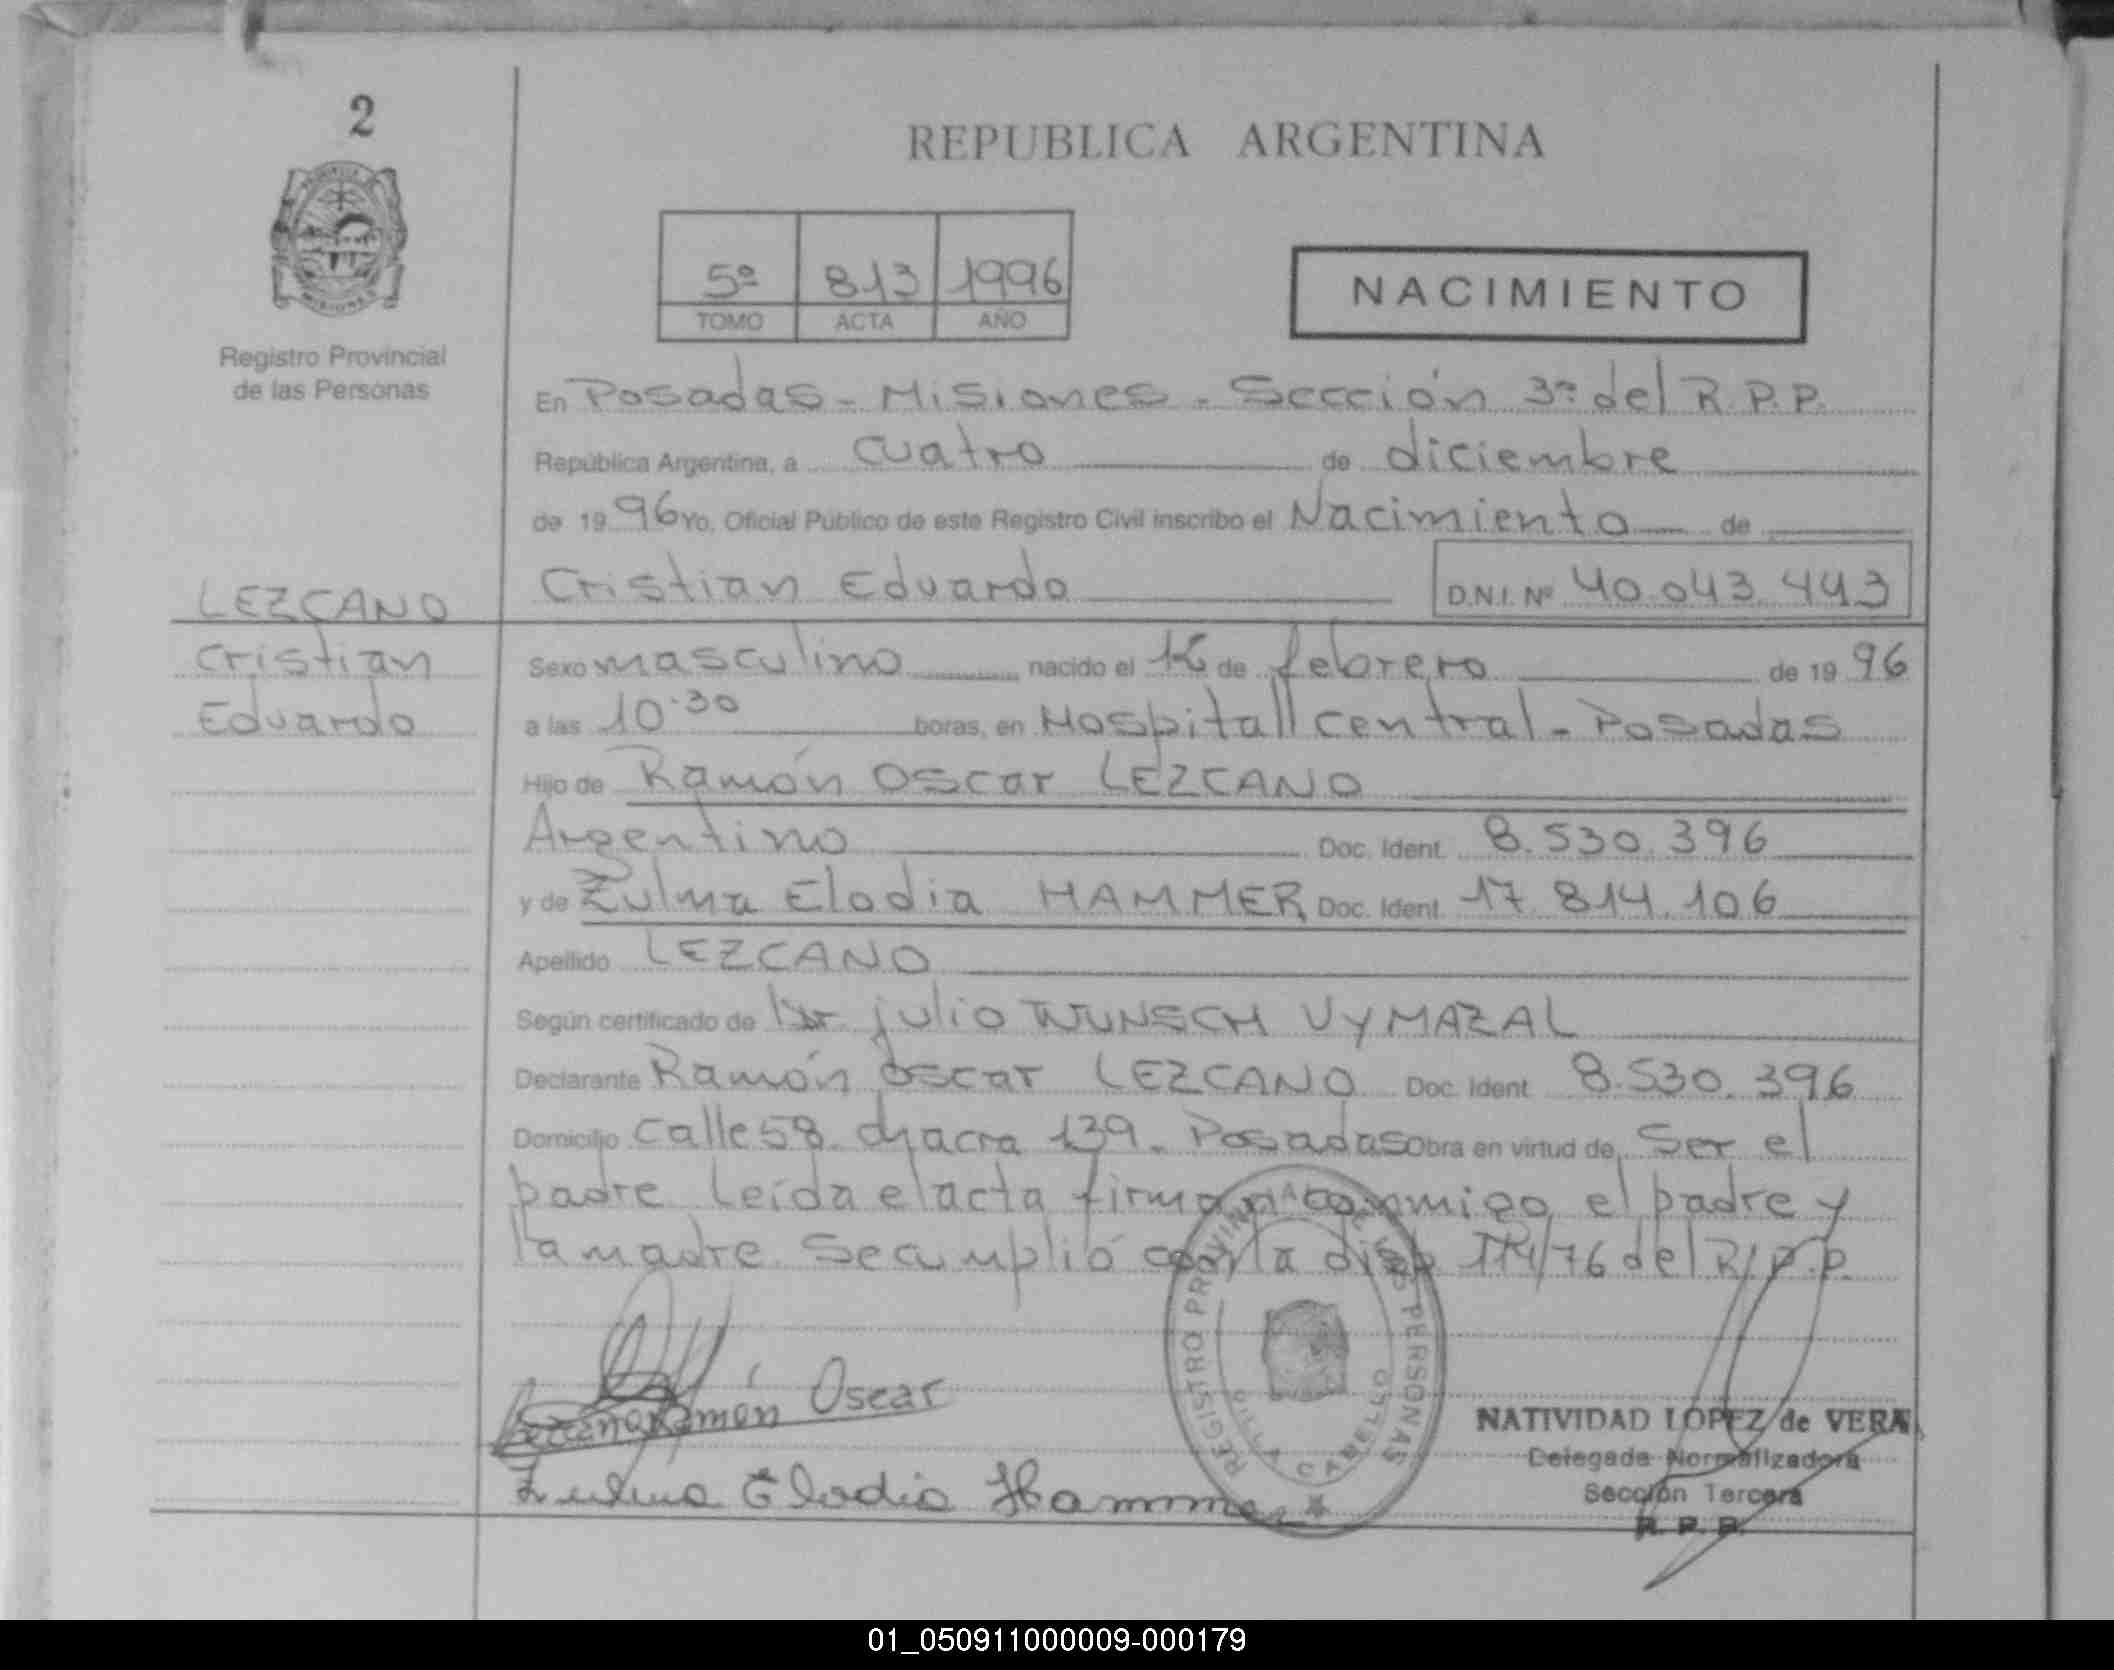 2
REPUBLICA ARGENTINA
5º 813 1996
TOMO ACTA AÑO
NACIMIENTO
Registro Provincial
de las Personas
En Posadas - Misiones - Sección 3ª del R.P.P.
República Argentina, a cuatro de diciembre
de 1996 Yo, Oficial Público de este Registro Civil inscribo el Nacimiento de
Cristian Eduardo D.N.I. Nº 40.043.443
LEZCANO
Cristian
Eduardo
Sexo masculino nacido el de febrero de 1996
a las 10.30 horas, en Hospital Central - Posadas
Hijo de Ramón Oscar LEZCANO
Argentino Doc. Ident. 8.530.396
y de Zulma Elodia HAMMER Doc. Ident. 17.814.106
Apellido LEZCANO
Según certificado de Dr. julio WUNSCH VYMAZAL
Declarante Ramón Oscar LEZCANO Doc. Ident. 8.530.396
Domicilio calle 58 chacra 139 - Posadas Obra en virtud de ser el
padre Leída el acta firman conmigo el padre y
la madre. Se cumplió con la disp /76 del R.P.P.
Lezcano Ramón Oscar
Zulma Elodia Hammer
REGISTRO PROVINCIAL DE LAS PERSONAS
VILLA CABELLO
NATIVIDAD LOPEZ de VERA
Delegada Normalizadora
Sección Tercera
R. P. P.
01_050911000009-000179